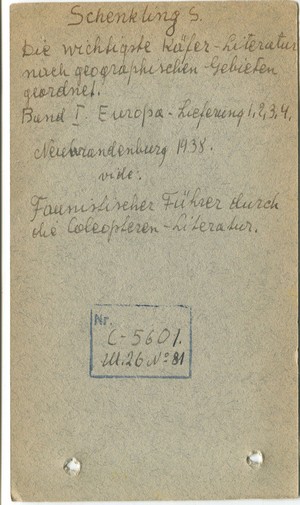 Schenkling S.
Die wichtigste Käfer-Literatur
nach geographischen Gebieten
geordnet.
Band I. Europa - Lieferung 1, 2, 3, 4.
Neubrandenburg 1938.
vide:
Faunistischer Führer durch
die Coleopteren-Literatur.
Nr.
C-5601.
III.26 No 81